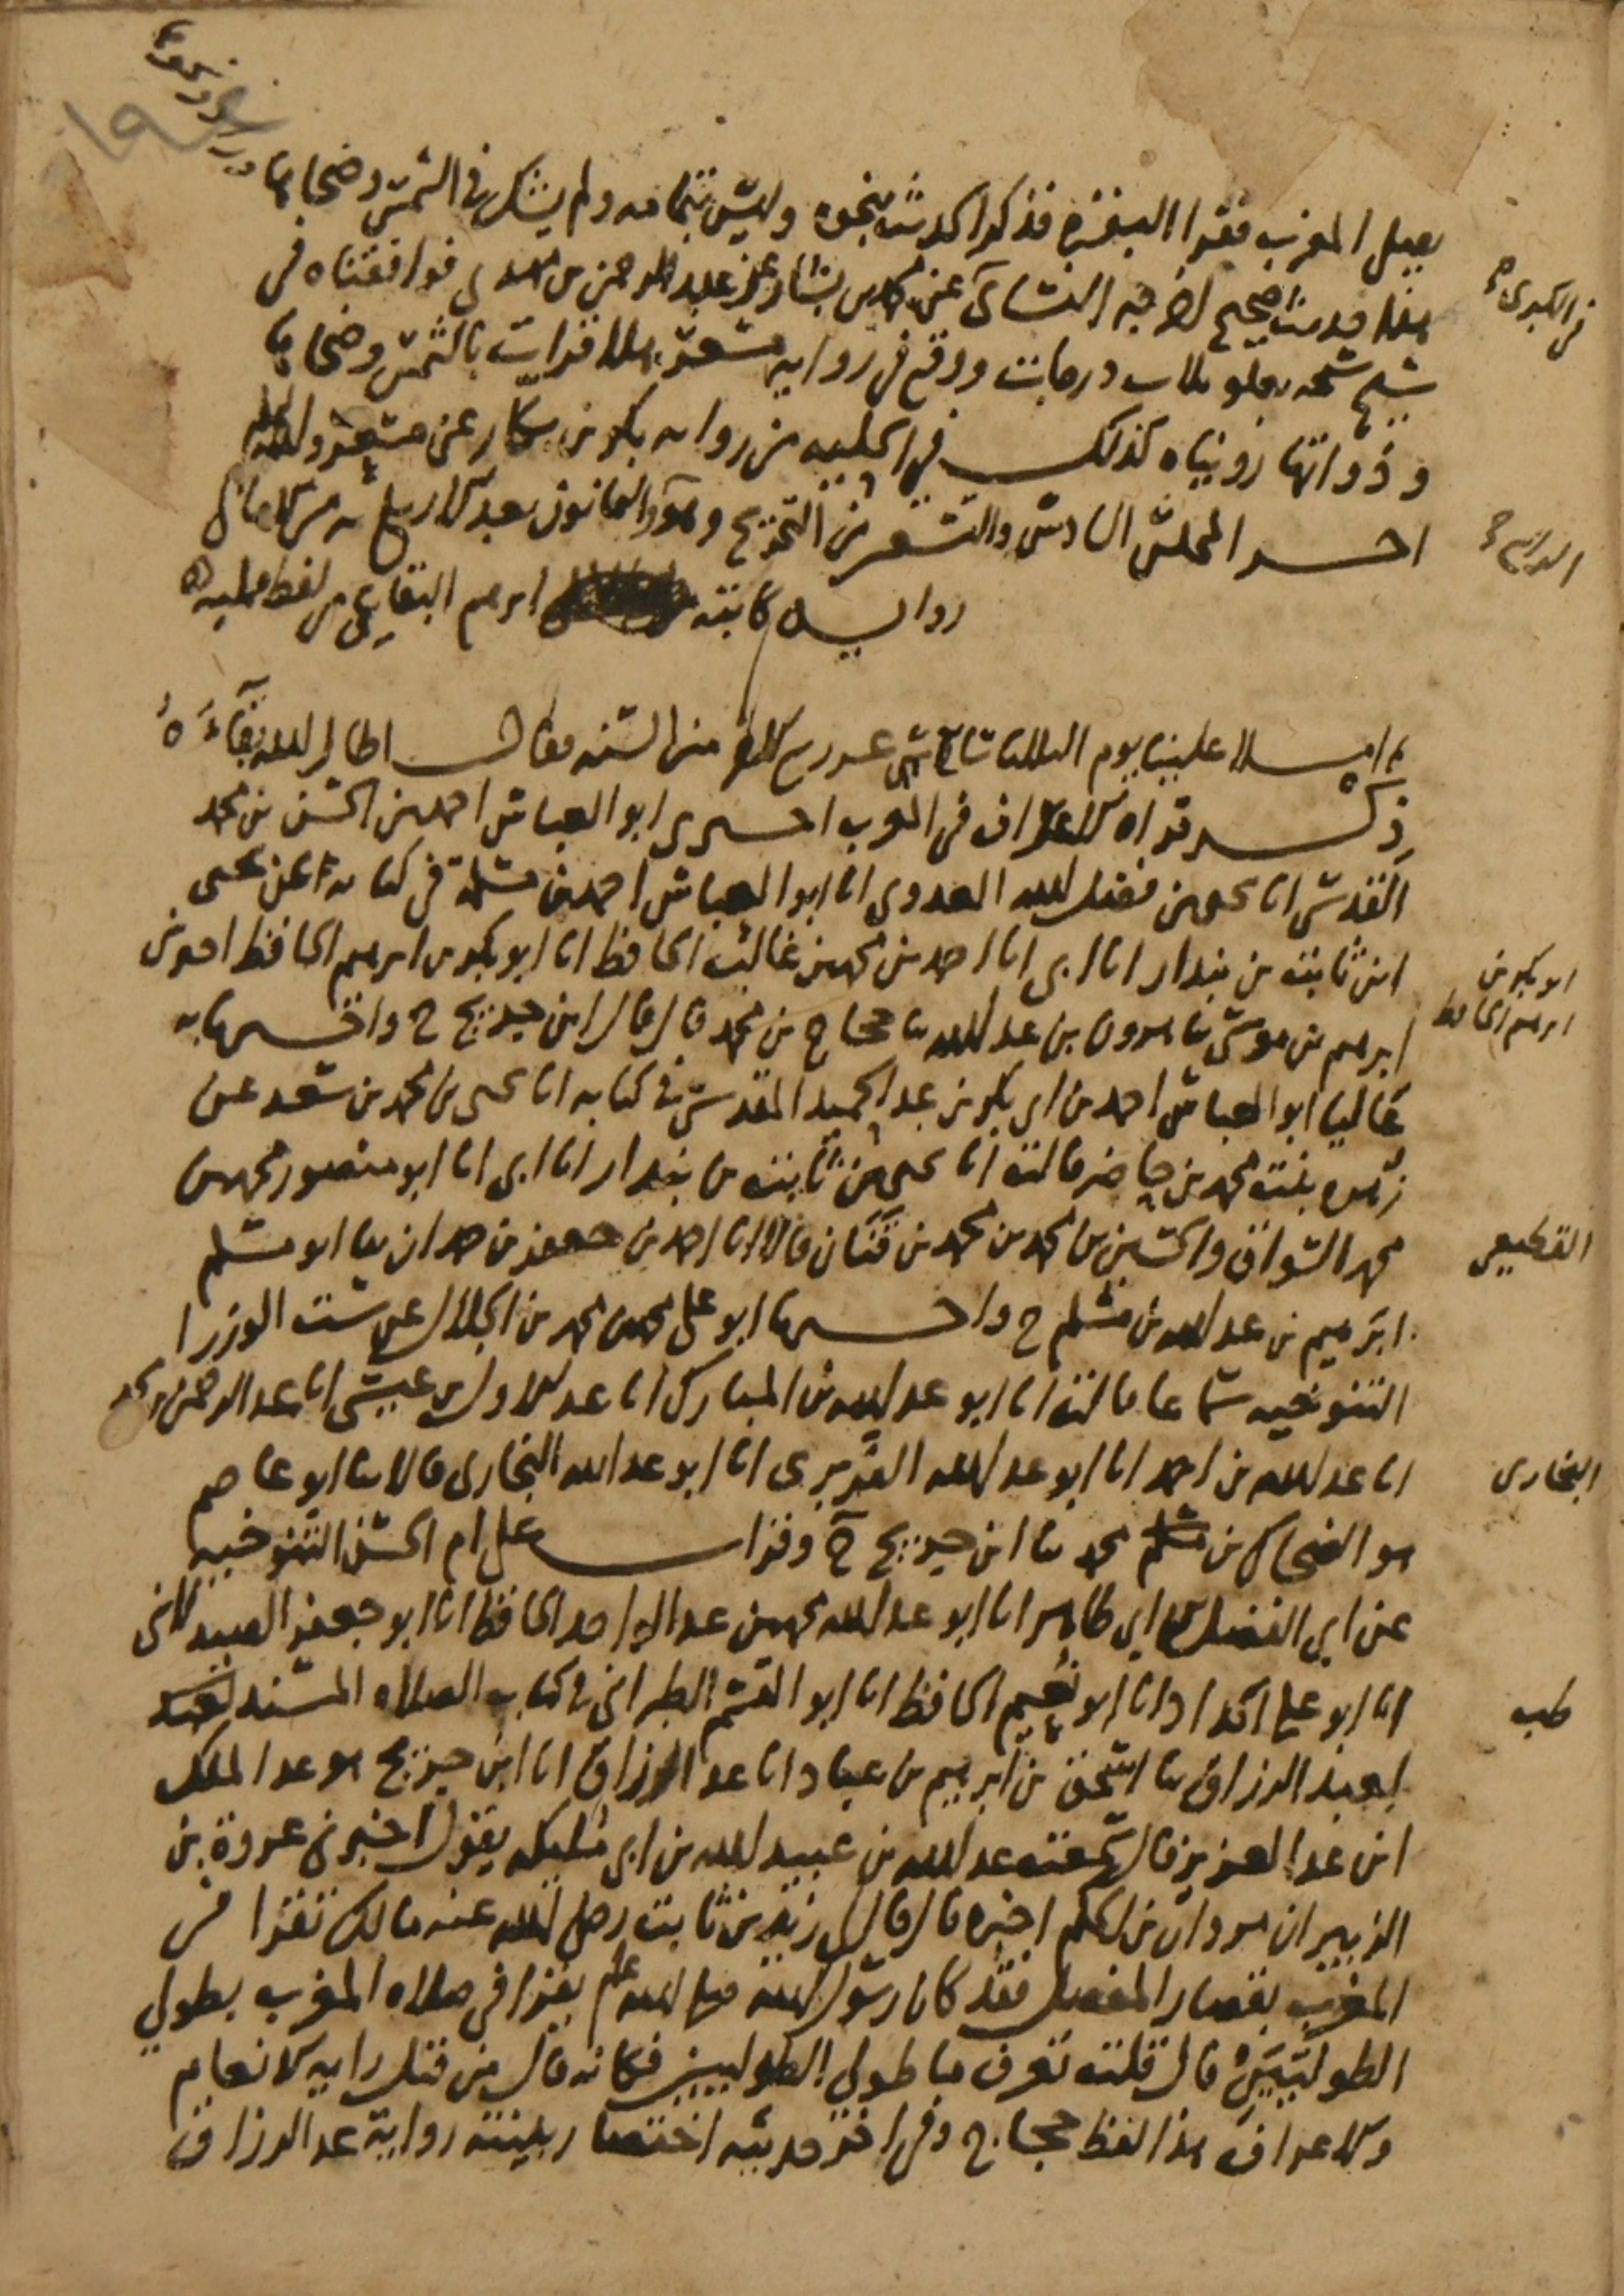 يصلي المغرب فقرا البقرة فذكر الحديث بنحوه وليس بتمامه ولم يشك في الشمس وضحاها
هذا حديث صحيح اخرجه النسائي عن محمد بن بشار عن عبد الرحمن بن مهدي فوافقناه في
في الكبرى
شيخ شيخه بعلو ثلاث درجات ووقع في رواية مسعر هلا قرات بالشمس وضحاها
وذواتها رويناه كذلك في الحلية من رواية بكر بن بكار عن مسعر والله اعلم
اخر المجلس السادس والتسعين من التخريج وهو الثمانون بعد الاربع مئة من الامالي
رواية كاتبه ابرهيم البقاعي من لفظ ممليه
ثم املا علينا يوم الثلاثا تاسع عشر ربيع الاخر من السنة فقال اطال الله بقاءه
ذكر قراة الاعراف في المغرب اخبرني ابو العباس احمد بن الحسن بن محمد
القدسي انا محمد بن فضل الله العدوي انا ابو العباس احمد بن مسلمة في كتابه عن يحيى
ابن ثابت بن بندار انا ابي انا احمد بن محمد بن غالب الحافظ انا ابو بكر بن ابرهيم الحافظ اخبرني
ابو بكر بن
ابرهيم الحافظ
ابرهيم بن موسى ثنا هرون بن عبد الله ثنا حجاج بن محمد قال قال ابن جريج ح واخبرنا به
عاليا ابو العباس احمد بن ابي بكر بن عبد الحميد المقدسي في كتابه انا يحيى بن محمد بن سعد عن
زهرة بنت محمد بن حاضر قالت انا يحيى بن ثابت بن بندار انا ابي انا ابو منصور محمد بن
محمد السواق والحسين بن محمد بن محمد بن قنان قالا انا احمد بن جعفر بن حمدان ثنا ابو مسلم
القطيعي
ابرهيم بن عبد الله بن مسلم ح واخبرنا ابو علي محمد بن محمد بن الجلال عن ست الوزرا
التنوخية سماعا قالت انا ابو عبد الله بن المبارك انا عبد الاول بن عيسى انا عبد الرحمن بن محمد
انا عبد الله بن احمد انا ابو عبد الله الفربري انا ابو عبد الله البخاري قالا ثنا ابو عاصم
البخاري
هو الضحاك بن مخلد ثنا ابن جريج ح وقرات على ام الحسن التنوخية
عن ابي الفضل بن ابي طاهر انا ابو عبد الله محمد بن عبد الواحد الحافظ انا ابو جعفر الصيدلاني
انا ابو علي الحداد انا ابو نعيم الحافظ انا ابو القسم الطبراني في كتاب الصلاة المسند
طب
لعبد الرزاق ثنا اسحق بن ابرهيم بن عباد انا عبد الرزاق انا ابن جريج هو عبد الملك
ابن عبد العزيز قال سمعت عبد الله بن عبيد الله بن ابي مليكة يقول اخبرني عروة بن
الزبير ان مروان بن الحكم اخبره قال قال لي زيد بن ثابت رضي الله عنه مالك تقرا في
المغرب بقصار المفصل فقد كان رسول الله صلى الله عليه وسلم يقرا في صلاة المغرب بطولي
الطوليين قال قلت لعروة ما طولي الطوليين فكانه قال من قبل رايه الانعام
والاعراف هذا لفظ حجاج وفي اخر حديثه اختصار بينته رواية عبد الرزاق